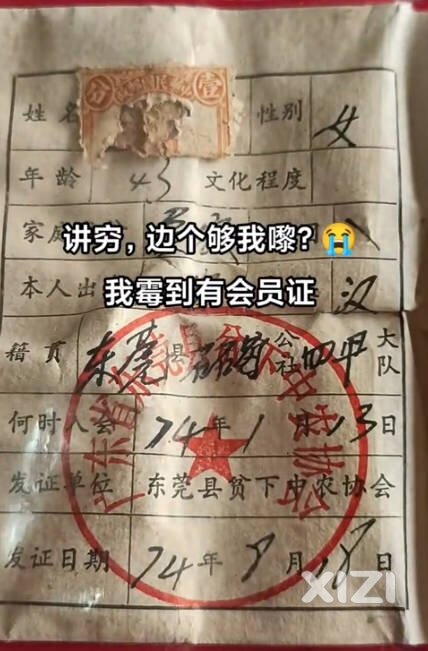 姓名 性别 女
年龄 43 文化程度
讲穷，边个够我嚟？😭
家庭
我霉到有会员证
本人出 汉
籍贯 东莞县 公社 四甲 大队
何时入会 74年1月13日
发证单位 东莞县贫下中农协会
发证日期 74年8月18日
XIZI